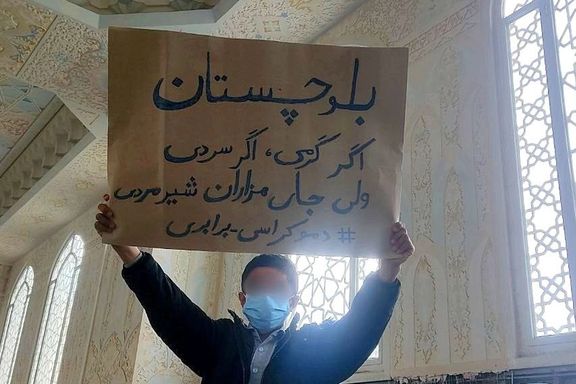 بلوچستان
اگر گرمی، اگر سردی
ولی جای هزاران شیر مردی
# دموکراسی-برابری